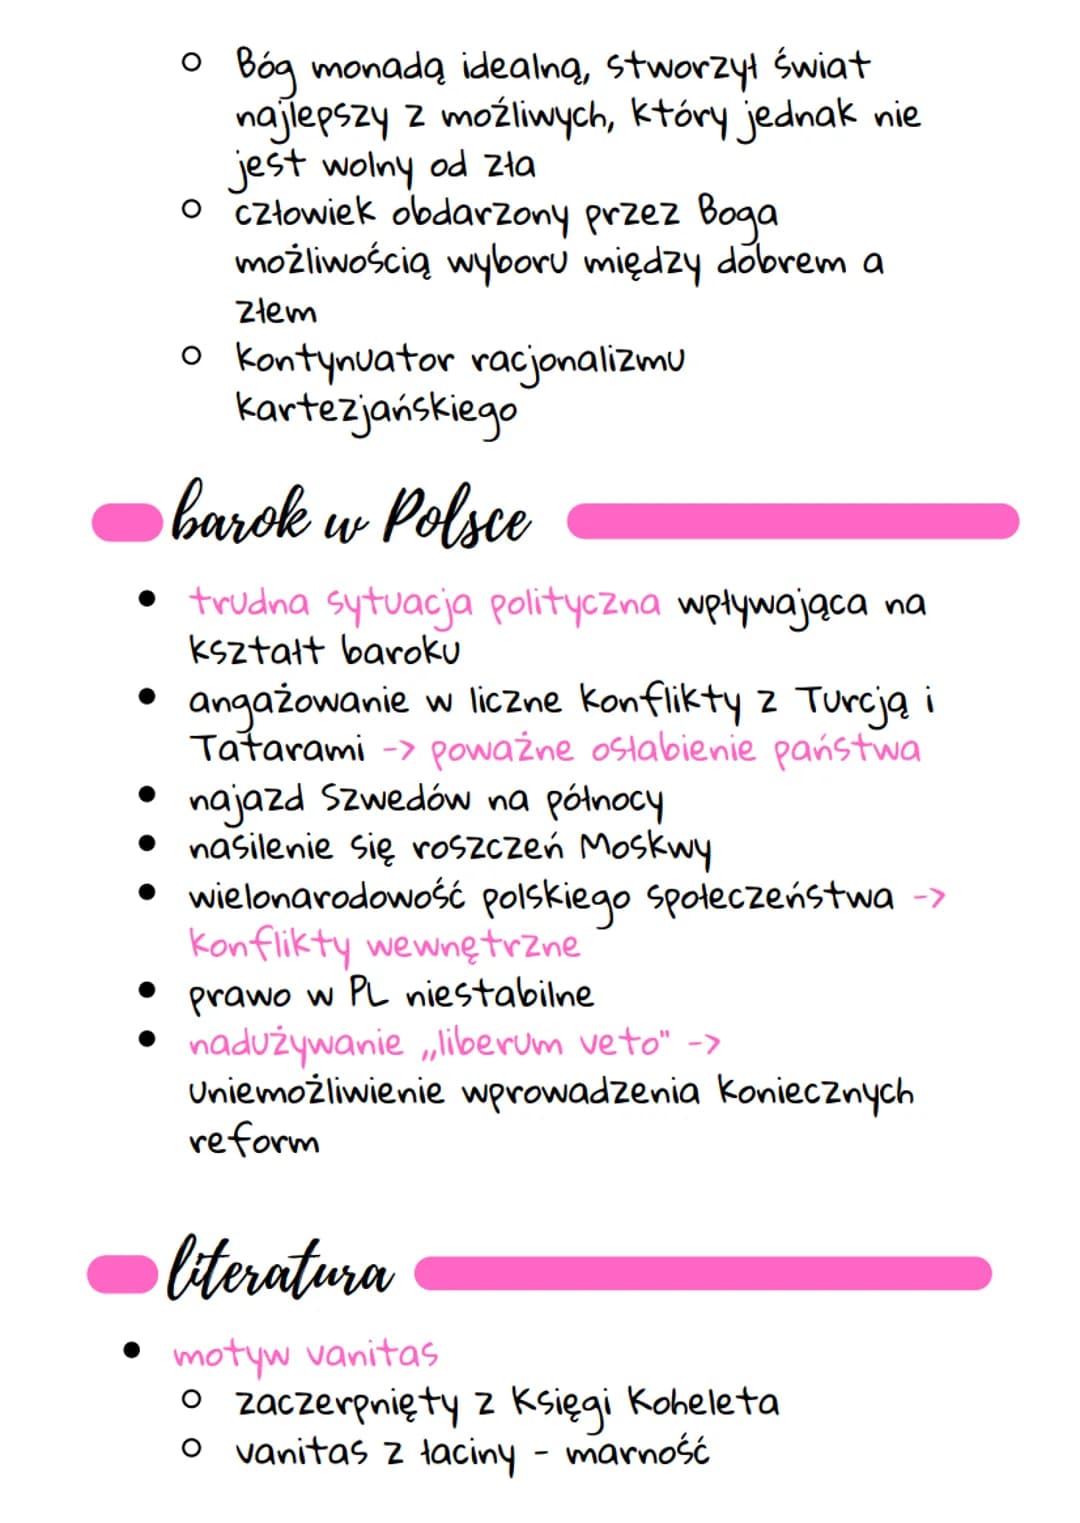 Bóg monadą idealną, stworzył świat
najlepszy z możliwych, który jednak nie
jest wolny od zła
człowiek obdarzony przez Boga
możliwością wyboru między dobrem a
złem
kontynuator racjonalizmu
kartezjańskiego
barok w Polsce
trudna sytuacja polityczna wpływająca na
kształt baroku
angażowanie w liczne konflikty z Turcją i
Tatarami -> poważne osłabienie państwa
najazd Szwedów na północy
nasilenie się roszczeń Moskwy
wielonarodowość polskiego społeczeństwa ->
konflikty wewnętrzne
prawo w PL niestabilne
nadużywanie „liberum veto" ->
uniemożliwienie wprowadzenia koniecznych
reform
literatura
motyw vanitas
zaczerpnięty z Księgi Koheleta
vanitas z łaciny - marność